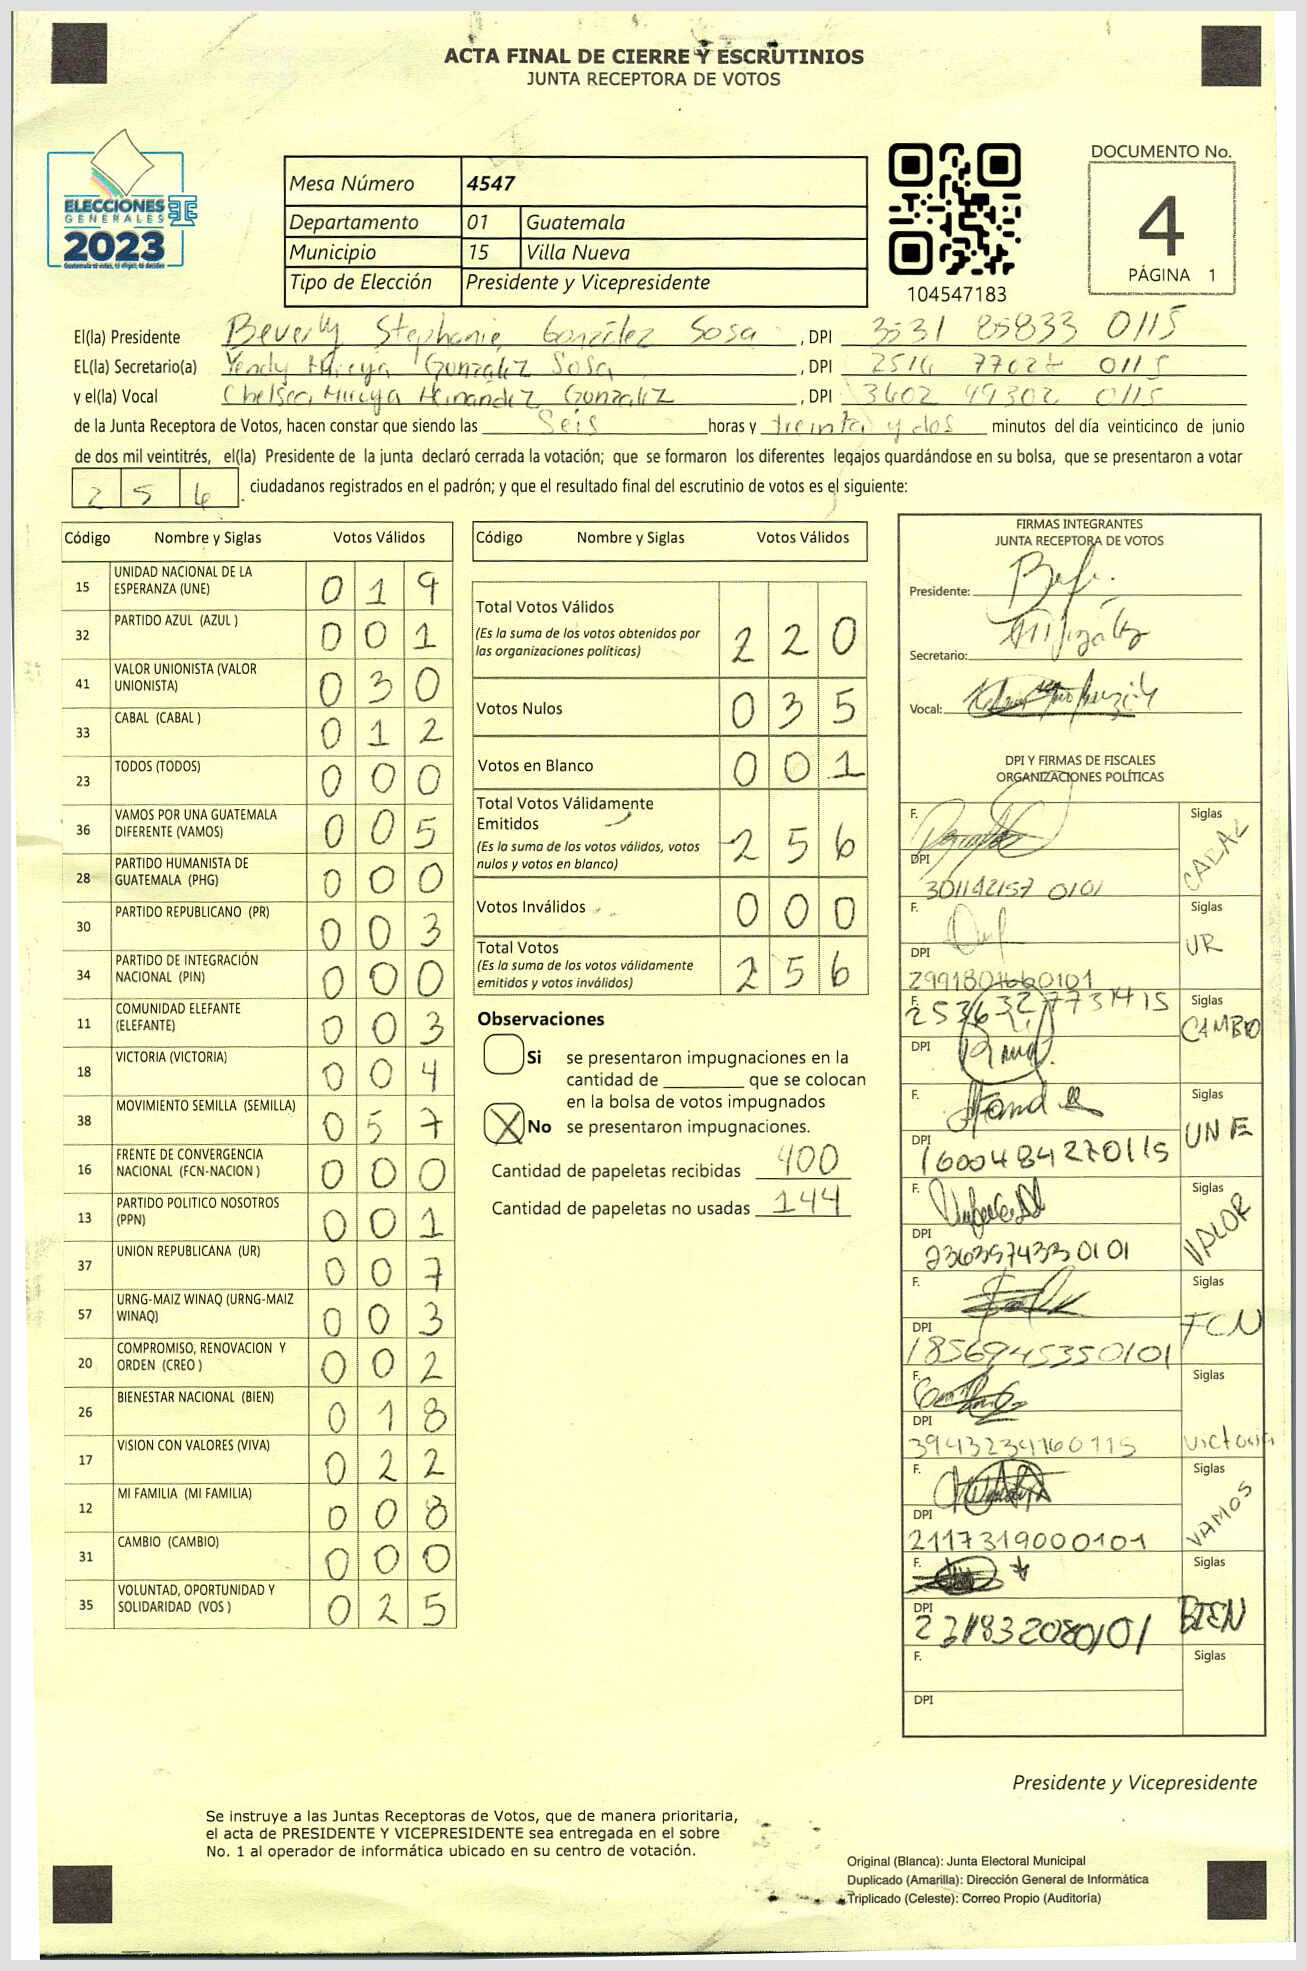 ACTA FINAL DE CIERRE Y ESCRUTINIOS
JUNTA RECEPTORA DE VOTOS
ELECCIONES
GENERALES
2023
Guatemala tú votas, tú eliges, tú decides
Mesa Número 4547
Departamento 01 Guatemala
Municipio 15 Villa Nueva
Tipo de Elección Presidente y Vicepresidente
104547183
DOCUMENTO No.
4
PÁGINA 1
El(la) Presidente Beverly Stephanie González Sosa, DPI 3531 85833 0115
EL(la) Secretario(a) Yendy Mireya González Sosa, DPI 2516 0115
y el(la) Vocal Chelsea Mireya Hernández González, DPI 3602 49302 0115
de la Junta Receptora de Votos, hacen constar que siendo las Seis horas y treinta y dos minutos del día veinticinco de junio
de dos mil veintitrés, el(la) Presidente de la junta declaró cerrada la votación; que se formaron los diferentes legajos quardándose en su bolsa, que se presentaron a votar
256 ciudadanos registrados en el padrón; y que el resultado final del escrutinio de votos es el siguiente:
Código Nombre y Siglas Votos Válidos
15 UNIDAD NACIONAL DE LA ESPERANZA (UNE) 0 1 9
32 PARTIDO AZUL (AZUL ) 0 0 1
41 VALOR UNIONISTA (VALOR UNIONISTA) 0 3 0
33 CABAL (CABAL ) 0 1 2
23 TODOS (TODOS) 0 0 0
36 VAMOS POR UNA GUATEMALA DIFERENTE (VAMOS) 0 0 5
28 PARTIDO HUMANISTA DE GUATEMALA (PHG) 0 0 0
30 PARTIDO REPUBLICANO (PR) 0 0 3
34 PARTIDO DE INTEGRACIÓN NACIONAL (PIN) 0 0 0
11 COMUNIDAD ELEFANTE (ELEFANTE) 0 0 3
18 VICTORIA (VICTORIA) 0 0 4
38 MOVIMIENTO SEMILLA (SEMILLA) 0 5 7
16 FRENTE DE CONVERGENCIA NACIONAL (FCN-NACION ) 0 0 0
13 PARTIDO POLITICO NOSOTROS (PPN) 0 0 1
37 UNION REPUBLICANA (UR) 0 0 7
57 URNG-MAIZ WINAQ (URNG-MAIZ WINAQ) 0 0 3
20 COMPROMISO, RENOVACION Y ORDEN (CREO ) 0 0 2
26 BIENESTAR NACIONAL (BIEN) 0 1 8
17 VISION CON VALORES (VIVA) 0 2 2
12 MI FAMILIA (MI FAMILIA) 0 0 8
31 CAMBIO (CAMBIO) 0 0 0
35 VOLUNTAD, OPORTUNIDAD Y SOLIDARIDAD (VOS ) 0 2 5
Código Nombre y Siglas Votos Válidos
Total Votos Válidos 2 2 0
(Es la suma de los votos obtenidos por las organizaciones políticas)
Votos Nulos 0 3 5
Votos en Blanco 0 0 1
Total Votos Válidamente Emitidos 2 5 6
(Es la suma de los votos válidos, votos nulos y votos en blanco)
Votos Inválidos 0 0 0
Total Votos 2 5 6
(Es la suma de los votos válidamente emitidos y votos inválidos)
Observaciones
Si se presentaron impugnaciones en la
cantidad de ________ que se colocan
en la bolsa de votos impugnados
X No se presentaron impugnaciones.
Cantidad de papeletas recibidas 400
Cantidad de papeletas no usadas 144
FIRMAS INTEGRANTES
JUNTA RECEPTORA DE VOTOS
Presidente:
Secretario:
Vocal:
DPI Y FIRMAS DE FISCALES
ORGANIZACIONES POLÍTICAS
F. Siglas CABAL
DPI 301142157 0101
F. Siglas UR
DPI 2991801660101
F. Siglas CAMBIO
DPI
F. Siglas UNE
DPI 1600484270115
F. Siglas VALOR
DPI 2363574330101
F. Siglas FCN
DPI 1856945350101
F. Siglas Victoria
DPI 3943234160115
F. Siglas VAMOS
DPI 2117319000101
F. Siglas BIEN
DPI
F. Siglas
DPI
Presidente y Vicepresidente
Se instruye a las Juntas Receptoras de Votos, que de manera prioritaria,
el acta de PRESIDENTE Y VICEPRESIDENTE sea entregada en el sobre
No. 1 al operador de informática ubicado en su centro de votación.
Original (Blanca): Junta Electoral Municipal
Duplicado (Amarilla): Dirección General de Informática
Triplicado (Celeste): Correo Propio (Auditoría)